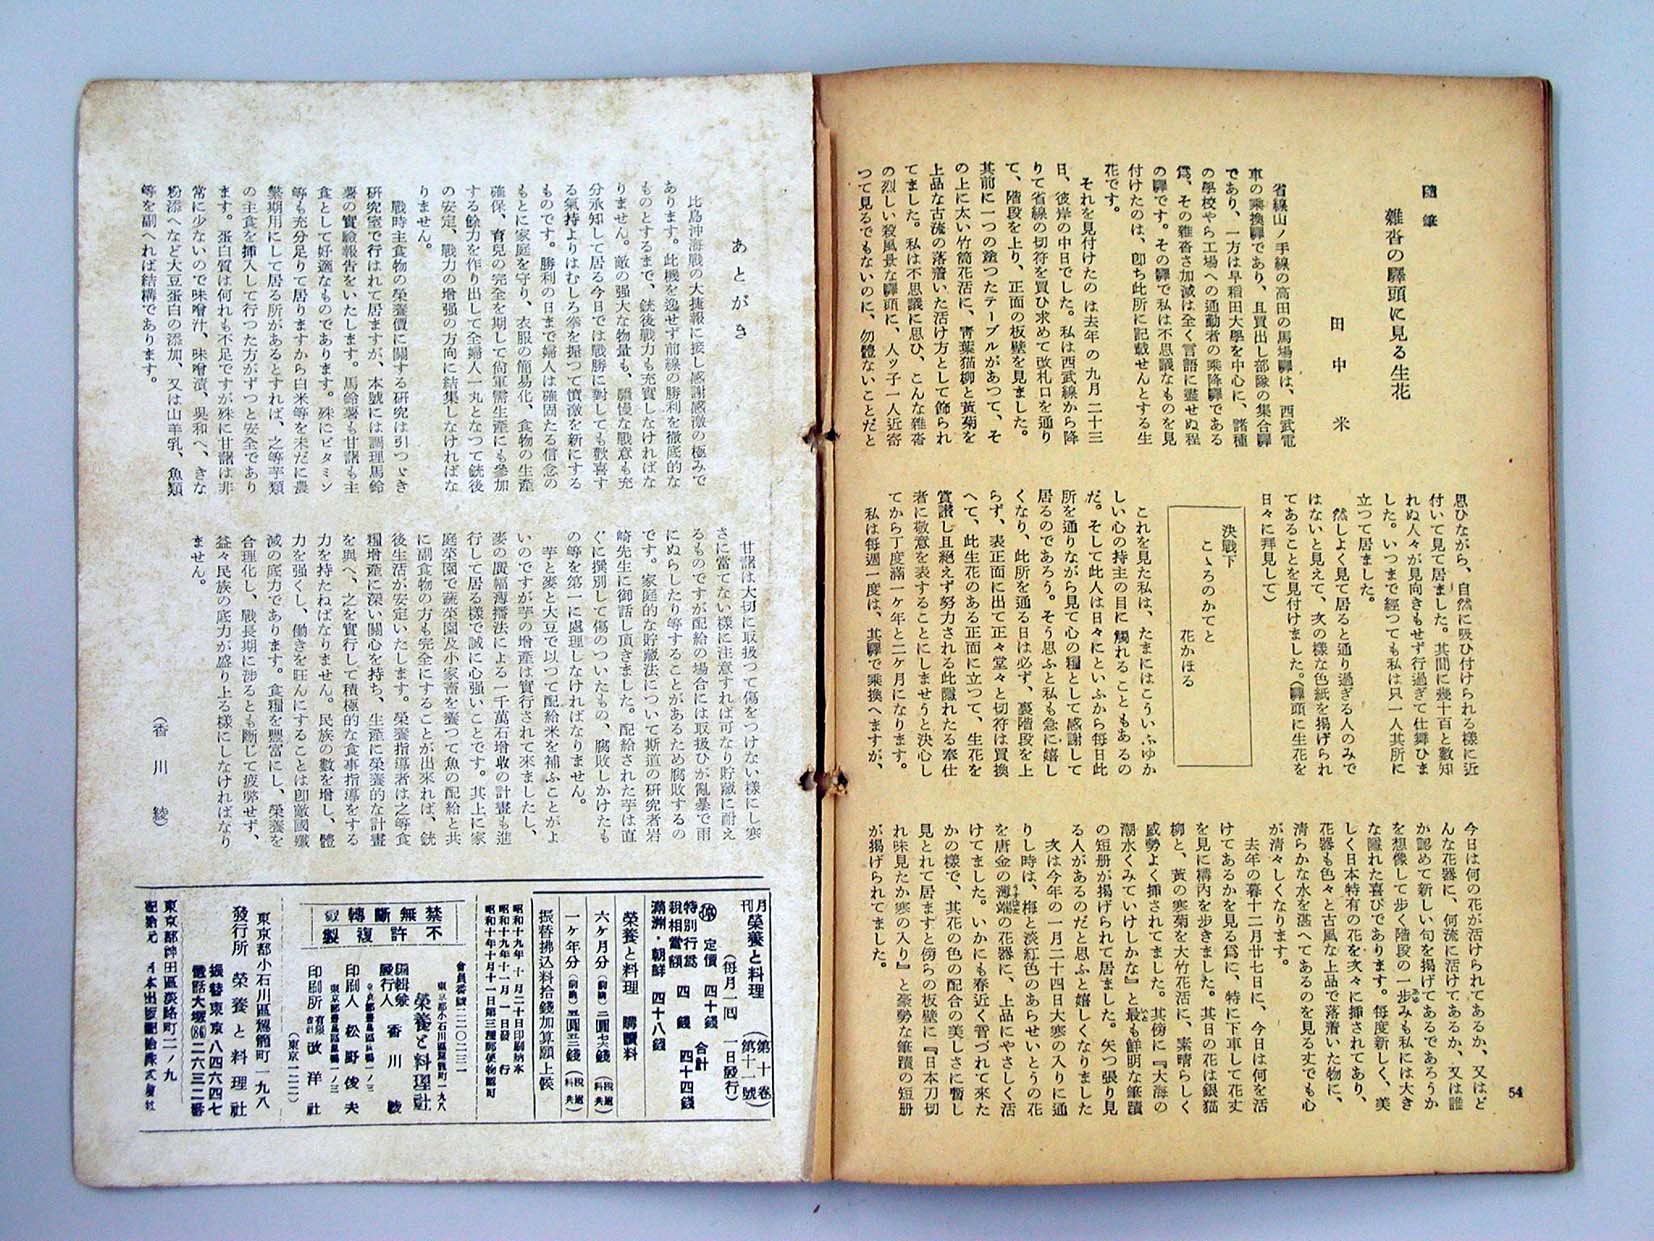 隨筆
雜沓の驛頭に見る生花
田中米
省線山ノ手線の高田の馬場驛は、西武電
車の乘換驛であり、且買出し部隊の集合驛
であり、一方は早稻田大學を中心に、諸種
の學校やら工場への通勤者の乘降驛である
爲、その雜沓さ加減は全く言語に盡せぬ程
の驛です。その驛で私は不思議なものを見
付けたのは、卽ち此所に記載せんとする生
花です。
それを見付けたのは去年の九月二十三
日、彼岸の中日でした。私は西武線から降
りて省線の切符を買ひ求めて改札口を通り
て、階段を上り、正面の板壁を見ました。
其前に一つの塗つたテーブルがあつて、そ
の上に太い竹筒花活に、靑葉猫柳と黃菊を
上品な古流の落着いた活け方として飾られ
てました。私は不思議に思ひ、こんな雜沓
の烈しい殺風景な驛頭に、人ッ子一人近寄
つて見るでもないのに、勿體ないことだと
思ひながら、自然に吸ひ付けられる樣に近
付いて見て居ました。其間に幾十百と數知
れぬ人々が見向きもせず行過ぎて仕舞ひま
した。いつまで經つても私は只一人其所に
立つて居ました。
然しよく見て居ると通り過ぎる人のみで
はないと見えて、次の樣な色紙を揭げられ
てあることを見付けました。(驛頭に生花を
日々に拜見して)
決戰下
こゝろのかてと
花かほる
これを見た私は、たまにはこういふゆか
しい心の持主の目に觸れることもあるの
だ。そして此人は日々にといふから每日此
所を通りながら見て心の糧として感謝して
居るのであろう。そう思ふと私も急に嬉し
くなり、此所を通る日は必ず、裏階段を上
らず、表正面に出て正々堂々と切符は買換
へて、此生花のある正面に立つて、生花を
賞讃し且絕えず努力される此隱れたる奉仕
者に敬意を表することにしませうと決心し
てから丁度滿一ケ年と二ケ月になります。
私は每週一度は、其驛で乘換へますが、
今日は何の花が活けられてあるか、又はど
んな花器に、何流に活けてあるか、又は誰
か認めて新しい句を揭げてあるであろうか
を想像して步く階段の一步みも私には大き
な隱れた喜びであります。每度新しく、美
しく日本特有の花を次々に挿されてあり、
花器も色々と古風な上品で落着いた物に、
淸らかな水を湛へてあるのを見る丈でも心
が淸々しくなります。
去年の暮十二月廿七日に、今日は何を活
けてあるかを見る爲に、特に下車して花丈
を見に構內を步きました。其日の花は銀猫
柳と、黃の寒菊を大竹花活に、素晴らしく
威勢よく挿されてました。其傍に『大海の
潮水くみていけしかな』と最も鮮明な筆蹟
の短册が揭げられて居ました。矢つ張り見
る人があるのだと思ふと嬉しくなりました
次は今年の一月二十四日大寒の入りに通
りし時は、梅と淡紅色のあらせいとうの花
を唐金の薄端の花器に、上品にやさしく活
けてました。いかにも春近く菅づれて來た
かの樣で、其花の色の配合の美しさに暫し
見とれて居ますと傍らの板壁に『日本刀切
れ味見たか寒の入り』と豪勢な筆蹟の短册
が揭げられてました。
54
あとがき
比島沖海戰の大捷報に接し感謝感激の極みで
あります。此機を逸せず前線の勝利を徹底的な
ものとするまで、銃後戰力も充實しなければな
りません。敵の强大な物量も、驕慢な戰意も充
分承知して居る今日では戰勝に對しても歡喜す
る氣持よりはむしろ拳を握つて憤激を新にする
ものです。勝利の日まで婦人は確固たる信念の
もとに家庭を守り、衣服の簡易化、食物の生產
確保、育兒の完全を期して尙軍需生產にも參加
する餘力を作り出して全婦人一丸となつて銃後
の安定、戰力の增强の方向に結集しなければな
りません。
戰時主食物の榮養價に關する硏究は引つゞき
硏究室で行はれて居ますが、本號には調理馬鈴
薯の實驗報吿をいたします。馬鈴薯も甘藷も主
食として好適なものであります。殊にビタミン
等も充分足りて居りますから白米等を未だに農
繁期用にして居る所があるとすれば、之等芋類
の主食を挿入して行つた方がずつと安全であり
ます。蛋白質は何れも不足ですが殊に甘藷は非
常に少ないので味噌汁、味噌漬、吳和へ、きな
粉添へなど大豆蛋白の添加、又は山羊乳、魚類
等を副へれば結構であります。
甘藷は大切に取扱つて傷をつけない樣にし寒
さに當てない樣に注意すれば可なり貯藏に耐え
るものですが配給の場合には取扱ひが亂暴で雨
にぬらしたり等することがあるため腐敗するの
です。家庭的な貯藏法について斯道の硏究者岩
崎先生に御話し頂きました。配給された芋は直
ぐに撰別して傷のついたもの、腐敗しかけたも
の等を第一に處理しなければなりません。
芋と麥と大豆で以つて配給米を補ふことがよ
いのですが芋の增產は實行されて來ましたし、
麥の廣幅薄播法による一千萬石增收の計畫も進
行して居る樣で誠に心强いことです。其上に家
庭菜園で蔬菜園及小家畜を養つて魚の配給と共
に副食物の方も完全にすることが出來れば、銃
後生活が安定いたします。榮養指導者は之等食
糧增產に深い關心を持ち、生產に榮養的な計畫
を與へ、之を實行して積極的な食事指導をする
力を持たねばなりません。民族の數を增し、體
力を强くし、働きを旺んにすることは卽敵國殲
滅の底力であります。食糧を豐富にし、榮養を
合理化し、戰長期に涉るとも斷じて疲弊せず、
益々民族の底力が盛り上る樣にしなければなり
ません。
(香川綾)
月刊 榮養と料理 (第十卷 第十一號)
(每月一囘 一日發行)
定價 四十錢 合計
特別行爲稅相當額 四錢 四十四錢
滿洲・朝鮮 四十八錢
榮養と料理 購讀料
六ケ月分(前納) 二圓七六錢(稅・送料共)
一ケ年分(前納) 五圓三錢(稅・送料共)
振替拂込料拾錢加算願上候
昭和十九年十月二十日印刷納本
昭和十九年十一月一日發行
昭和十年十月十一日第三種郵便物認可
禁無斷轉載
不許複製
會員番號二二〇二三一
東京都小石川區駕籠町一九八
榮養と料理社
編輯兼發行人 香川綾
東京都豐島區巢鴨一ノ三
印刷人 松野俊夫
東京都豐島區巢鴨一ノ三
印刷所 有限會社 改洋社
(東京一二二)
東京都小石川區駕籠町一九八
發行所 榮養と料理社
振替東京八四六四七
電話大塚(86)二六三二番
東京都神田區淡路町二ノ九
配給元 日本出版配給株式會社